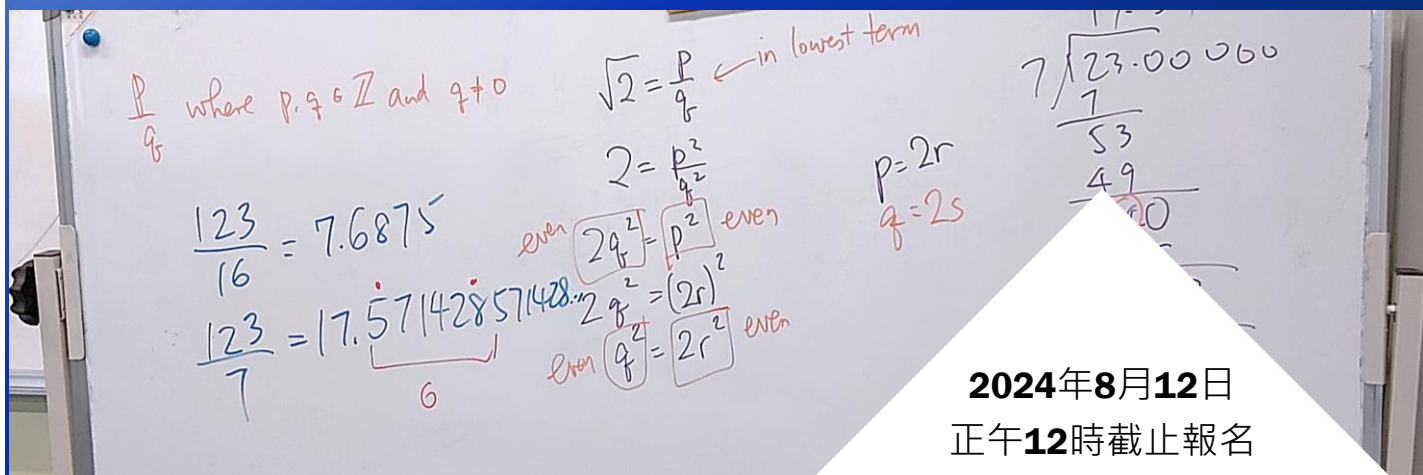 p/q where p, q ∈ ℤ and q ≠ 0
123/16 = 7.6875
123/7 = 17.571428571428...
6
√2 = p/q ← in lowest term
2 = p²/q²
even 2q² = p² even
2q² = (2r)²
even q² = 2r² even
p = 2r
q = 2s
7 123.00000
7
53
49
2024年8月12日
正午12時截止報名